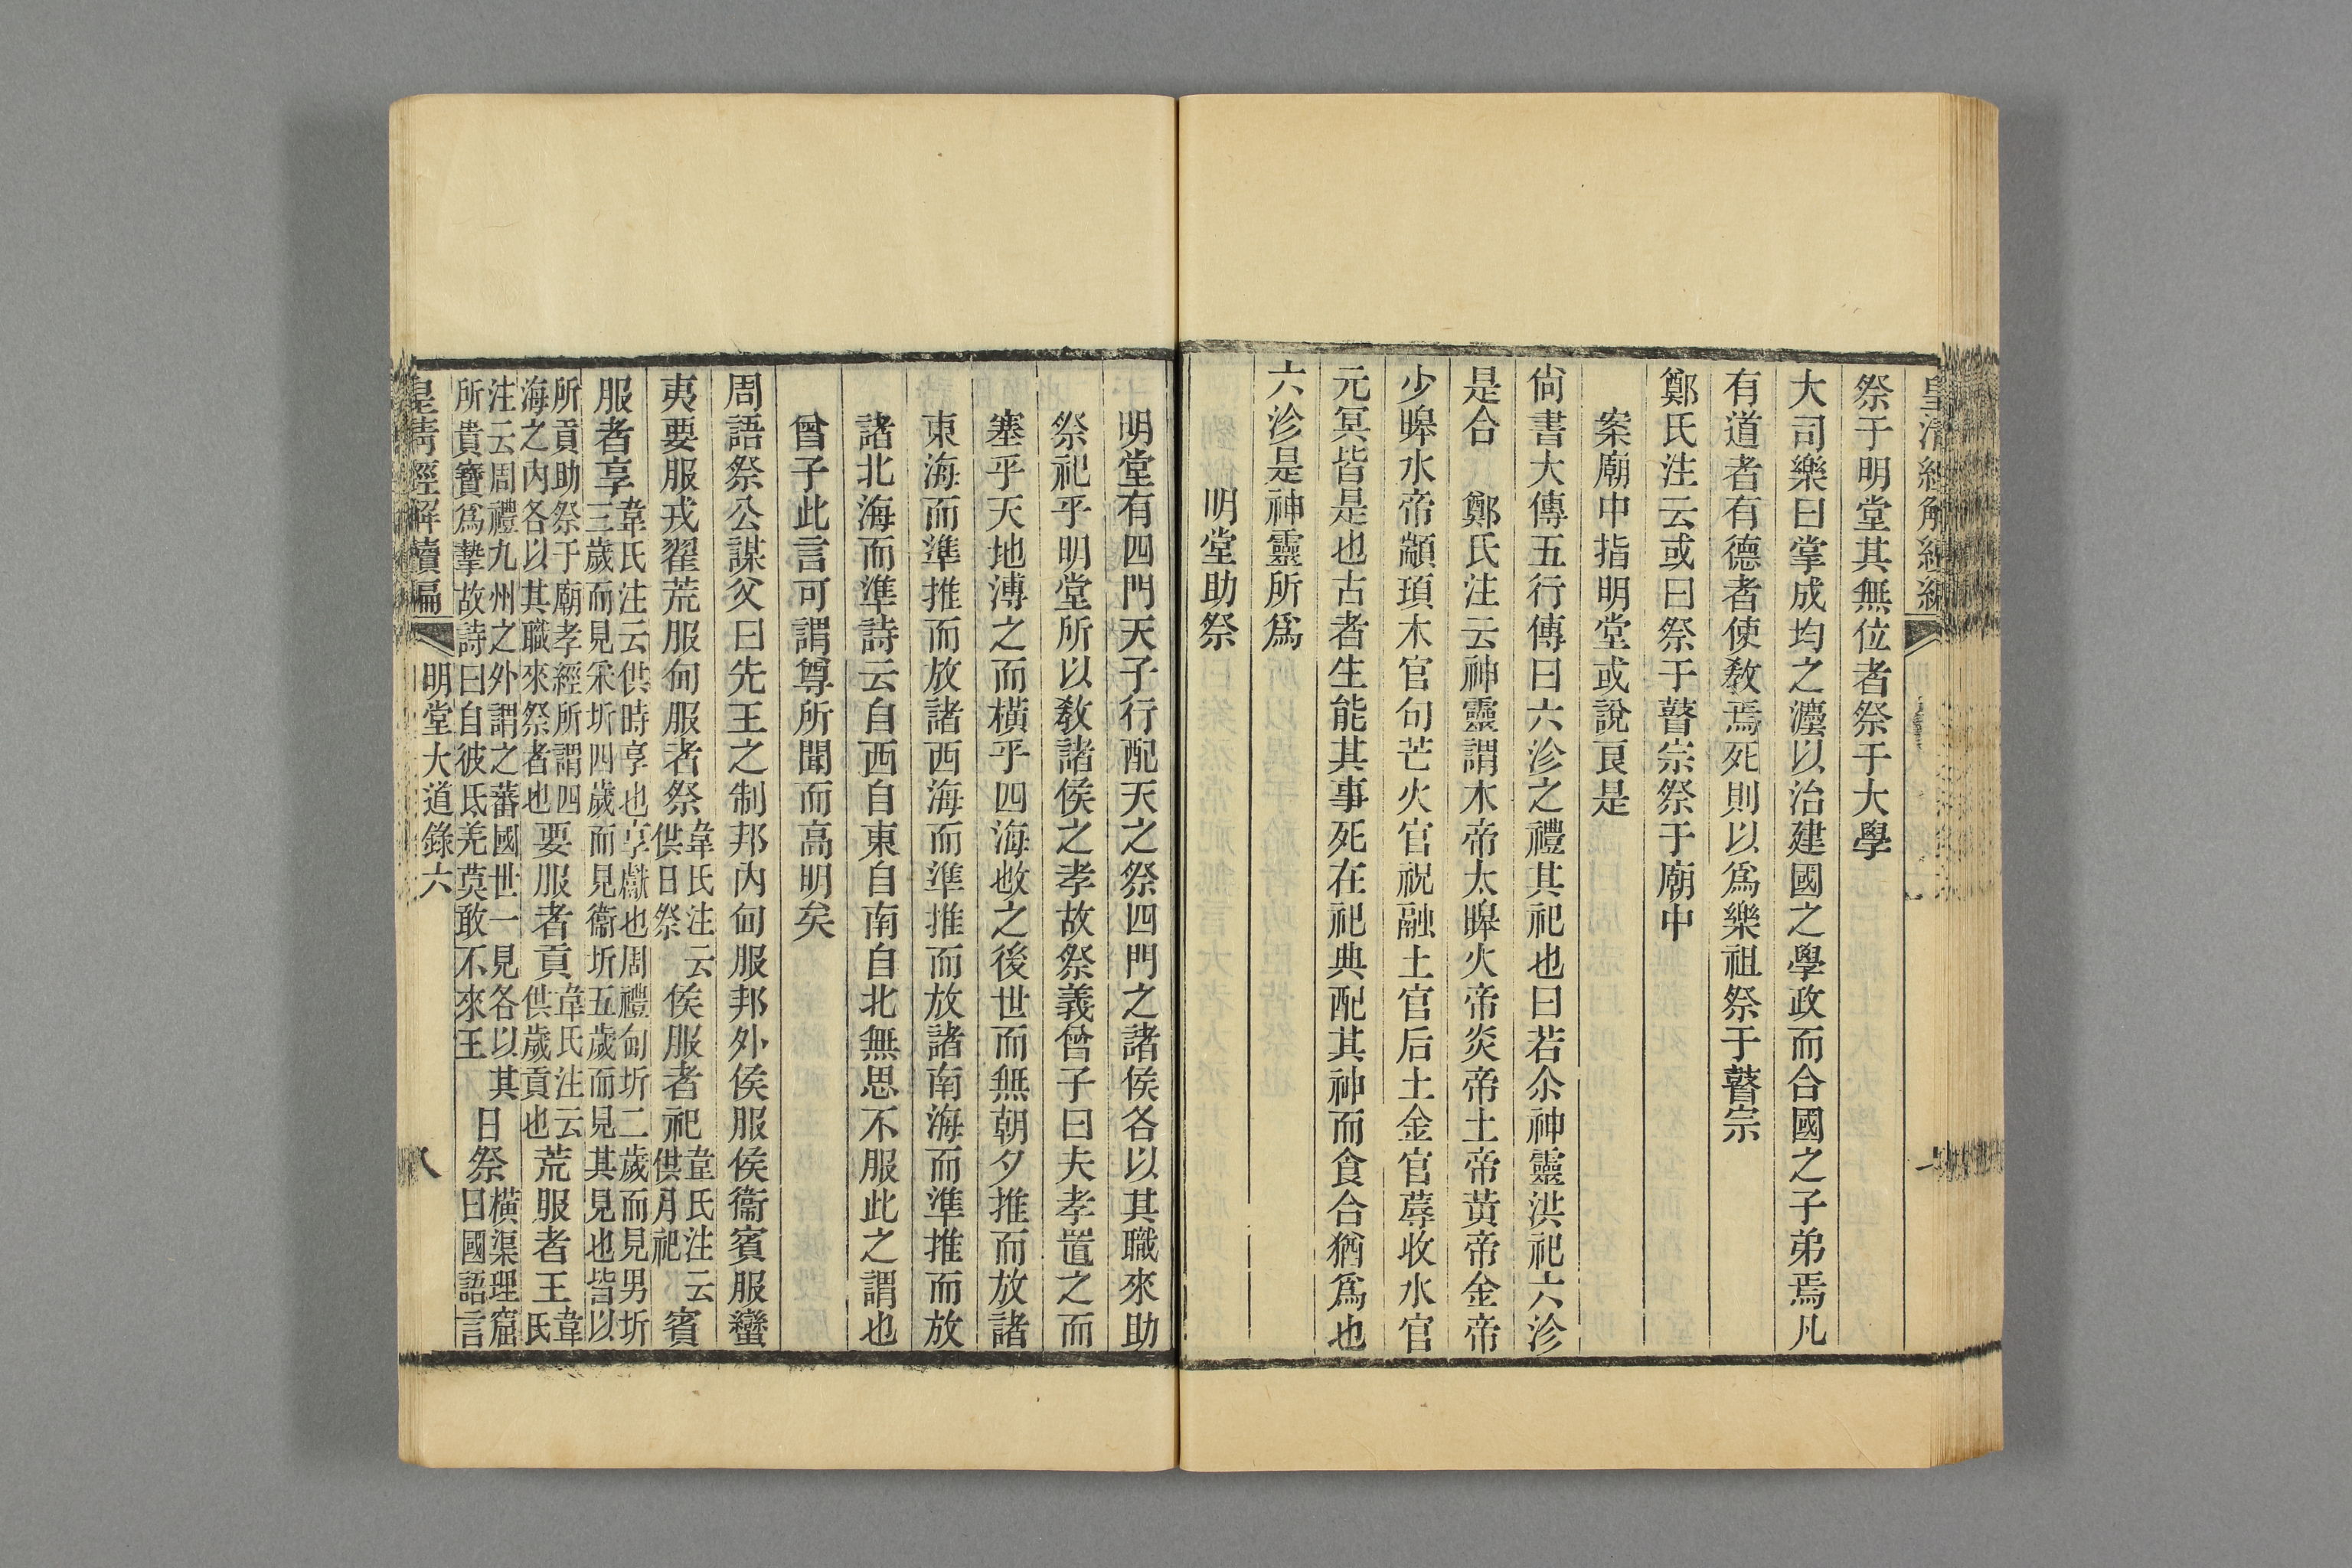 祭于明堂其無位者祭于大學
大司樂曰掌成均之灋以治建國之學政而合國之子弟焉凡
有道者有德者使敎焉死則以爲樂祖祭于瞽宗
鄭氏注云或曰祭于瞽宗祭于廟中
案廟中指明堂或說良是
尙書大傳五行傳曰六沴之禮其祀也曰若尒神靈洪祀六沴
是合　鄭氏注云神靈謂木帝太皞火帝炎帝土帝黃帝金帝
少皞水帝顓頊木官句芒火官祝融土官后土金官蓐收水官
元冥皆是也古者生能其事死在祀典配其神而食合猶爲也
六沴是神靈所爲
明堂助祭
明堂有四門天子行配天之祭四門之諸侯各以其職來助
祭祀乎明堂所以敎諸侯之孝故祭義曾子曰夫孝置之而
塞乎天地溥之而橫乎四海施之後世而無朝夕推而放諸
東海而準推而放諸西海而準推而放諸南海而準推而放
諸北海而準詩云自西自東自南自北無思不服此之謂也
曾子此言可謂尊所聞而高明矣
周語祭公謀父曰先王之制邦內甸服邦外侯服侯衞賓服蠻
夷要服戎翟荒服甸服者祭韋氏注云供日祭侯服者祀韋氏注云供月祀賓
服者享韋氏注云供時享也享獻也周禮甸圻二歲而見男圻三歲而見采圻四歲而見衞圻五歲而見其見也皆以
所貢助祭于廟孝經所謂四海之內各以其職來祭者也要服者貢韋氏注云供歲貢也荒服者王韋氏
注云周禮九州之外謂之蕃國世一見各以其所貴寶爲摯故詩曰自彼氐羌莫敢不來王日祭橫渠理窟曰國語言
皇淸經解續編　明堂大道錄六　八